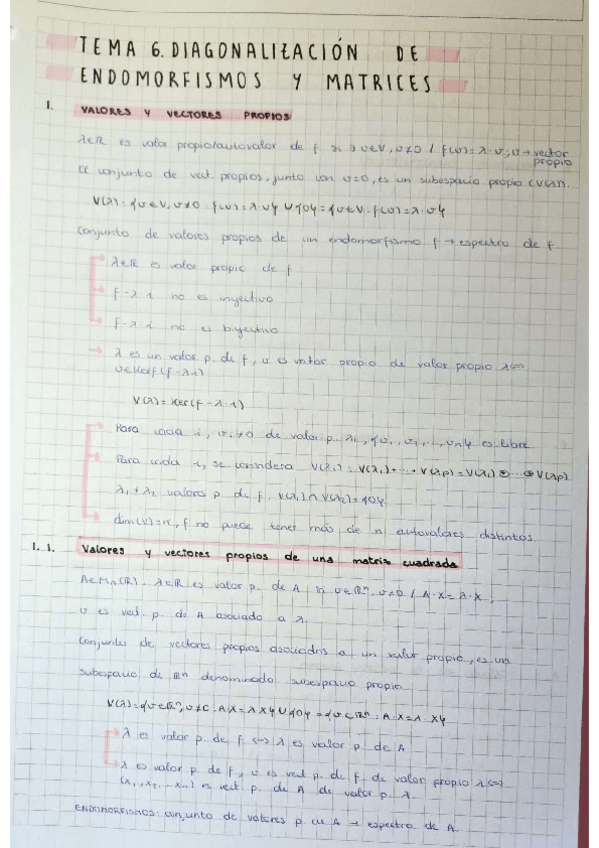 TEMA 6. DIAGONALIZACIÓN DE
ENDOMORFISMOS Y MATRICES
1. VALORES Y VECTORES PROPIOS
λ∈ℝ es valor propio/autovalor de f si ∃ v∈V, v≠0 / f(v)=λ·v, v→vector
propio
El conjunto de vect. propios, junto con v=0, es un subespacio propio (V(λ)).
V(λ)={v∈V, v≠0 : f(v)=λ·v} ∪ {0} = {v∈V : f(v)=λ·v}
Conjunto de valores propios de un endomorfismo f → espectro de f.
λ∈ℝ es valor propio de f
f-λ·i no es inyectivo
f-λ·i no es biyectivo
→ λ es un valor p. de f, v es vector propio de valor propio λ⇔
v∈Ker(f-λ·i)
V(λ)=Ker(f-λ·i)
Para cada i, vi≠0 de valor p. λi, {v1, v2, ..., vn} es libre
Para cada i, se considera V(λi): V(λ1)+...+V(λp)=V(λ1)⊕...⊕V(λp)
λ1≠λ2 valores p. de f, V(λ1)∩V(λ2)={0}
dim(V)=n, f no puede tener más de n autovalores distintos.
1.1. Valores y vectores propios de una matriz cuadrada
A∈Mn(ℝ). λ∈ℝ es valor p. de A si v∈ℝⁿ, v≠0 / A·X=λ·X
v es vect. p. de A asociado a λ.
Conjunto de vectores propios asociados a un valor propio, es un
subespacio de ℝⁿ denominado subespacio propio
V(λ)={v∈ℝⁿ, v≠0 : A·X=λX} ∪ {0} = {v∈ℝⁿ : A·X=λ·X}
λ es valor p. de f ⇔ λ es valor p. de A
λ es valor p. de f, v es vect p. de f de valor propio λ⇔
(x1, x2, ... xn) es vect. p. de A de valor p. λ.
ENDOMORFISMOS: conjunto de valores p. de A → espectro de A.